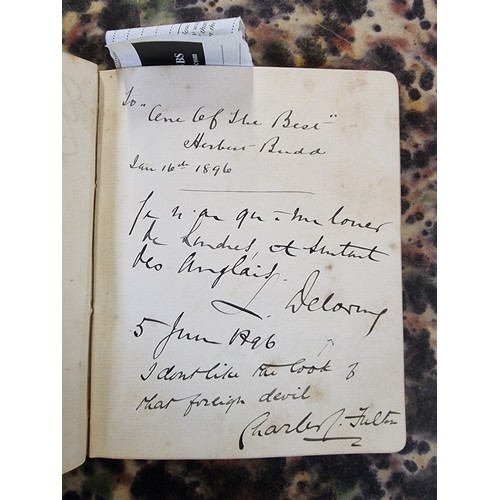 BS
.com
To "One Of The Best"
Herbert Budd
Jan 16th 1896
Je n'ai qu'à me louer
de Londres, et surtout
des Anglais.
L. Delorme
5 Juin 1896
I don't like the look of
that foreign devil
Charles J. Fulton